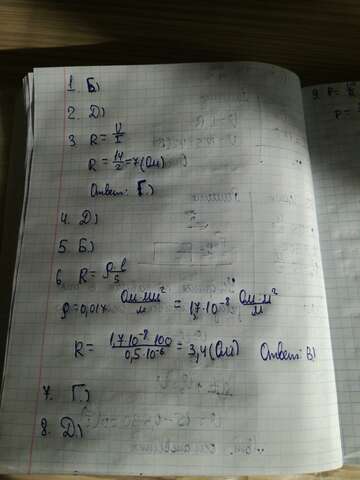 1. Б)
2. Д)
3. R = U/I
R = 14/2 = 7 (Ом)
Ответ: Г.)
4. Д)
5. Б)
6. R = ρ·l/S
ρ = 0,017 Ом·мм²/м = 1,7·10⁻⁸ Ом·м²/м
R = 1,7·10⁻⁸·100/0,5·10⁻⁶ = 3,4 (Ом) Ответ: В)
7. Г)
8. Д)
9. P =
P =